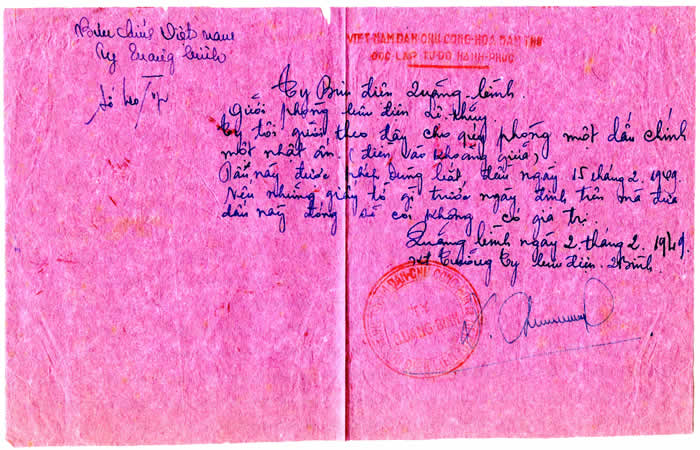 Bưu chính Việt nam
Ty Quảng bình
Số
VIỆT-NAM DÂN CHỦ CỘNG-HÒA DÂN THỨ
ĐỘC-LẬP TỰ-DO HẠNH-PHÚC
Ty Bưu điện Quảng-bình
gưởi phòng bưu điện Lệ thủy.
Ty tôi gưởi theo đây cho quý phòng một dấu chính
một nhật ấn. (điền vào khoảng giữa)
Dấu này được phép dùng bắt đầu ngày 15 tháng 2. 1949.
Nếu những giấy tờ gì trước ngày định trên mà đưa
dấu này đóng sẽ coi không có giá trị.
Quảng bình ngày 2. tháng 2. 1949.
Trưởng Ty bưu điện. Q Bình.
DÂN-CHỦ CỘNG-HÒA
QUẢNG BÌNH